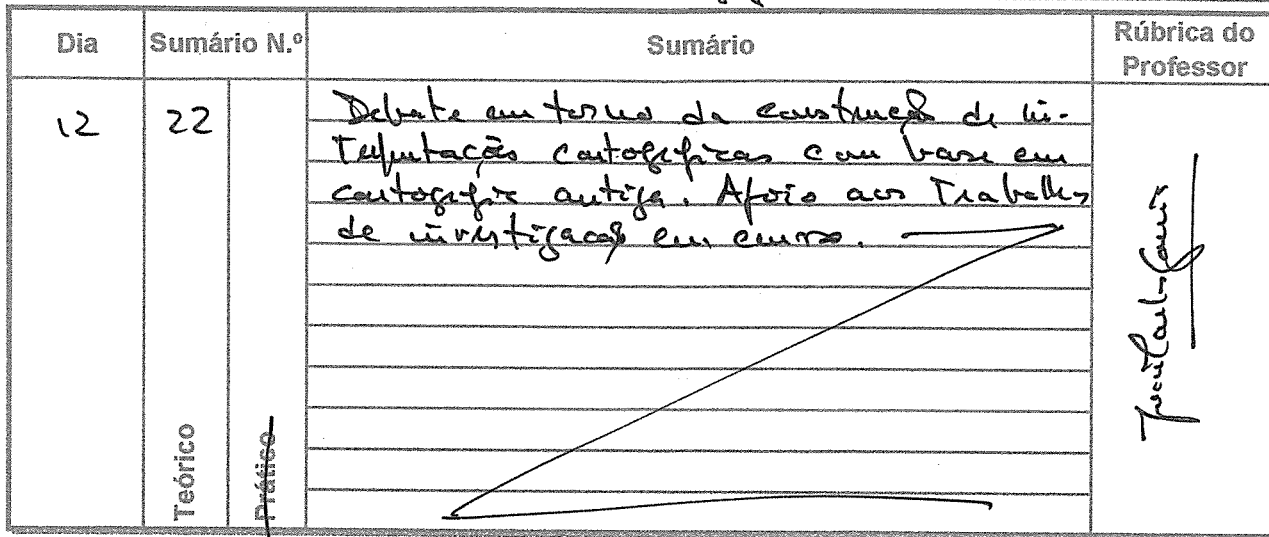 Dia Sumário N.º Sumário Rúbrica do Professor
12 22 Debate em torno da construção de in-
terpretações cartográficas com base em
cartografia antiga. Apoio aos Trabalhos
de investigação em curso.
Teórico Prático